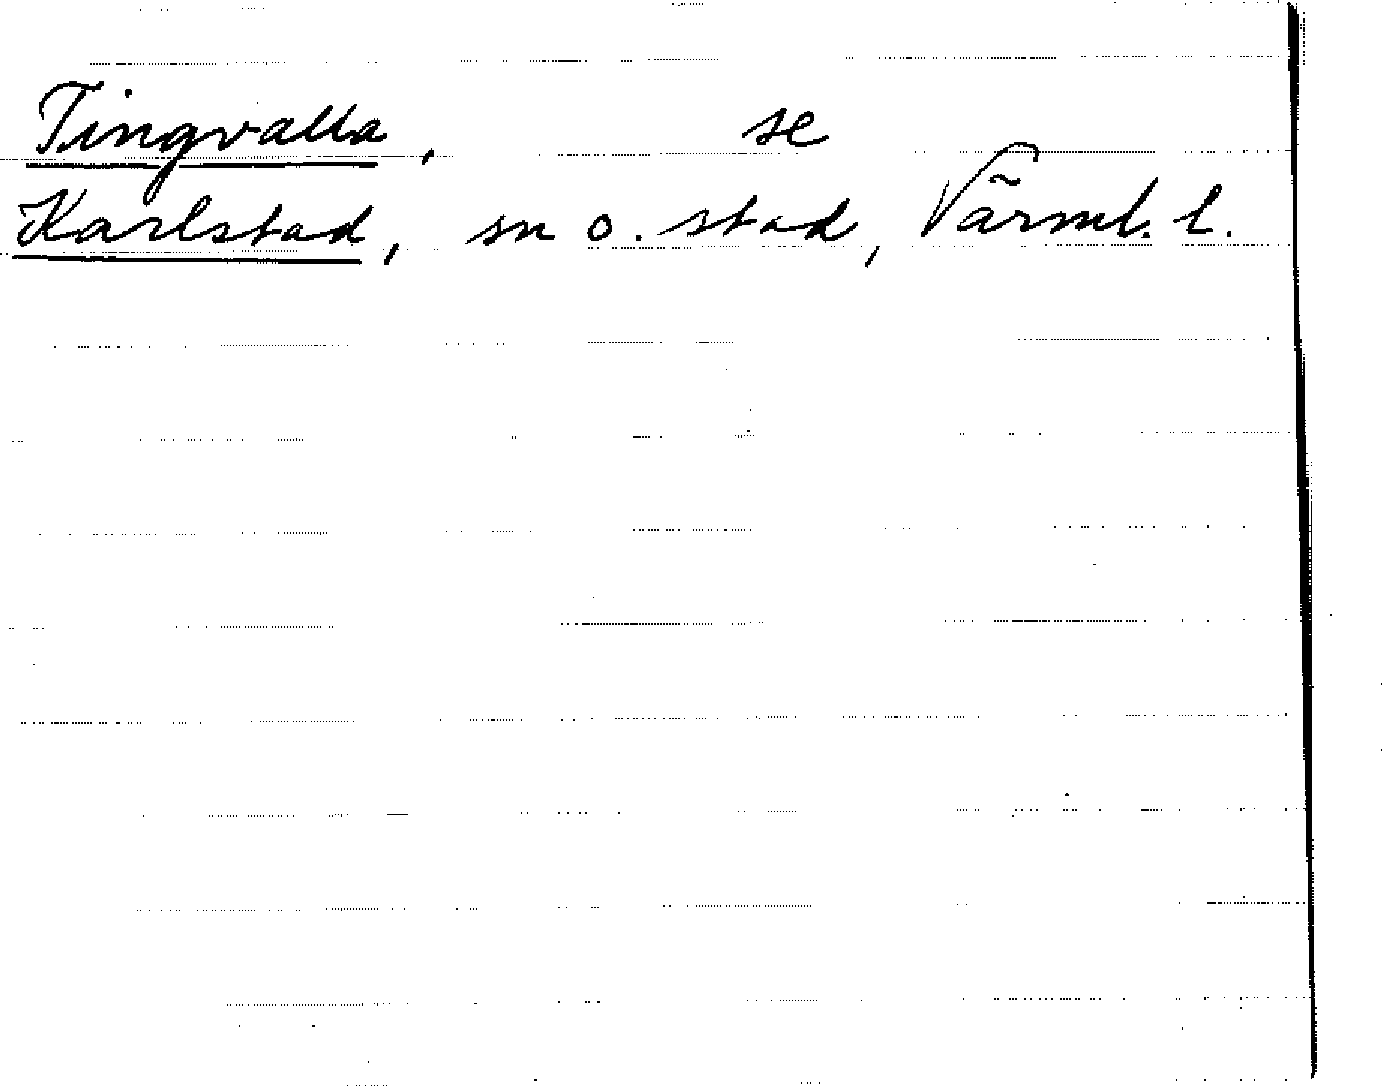 Tingvalla, se
Karlstad, sn o. stad, Värml. l.